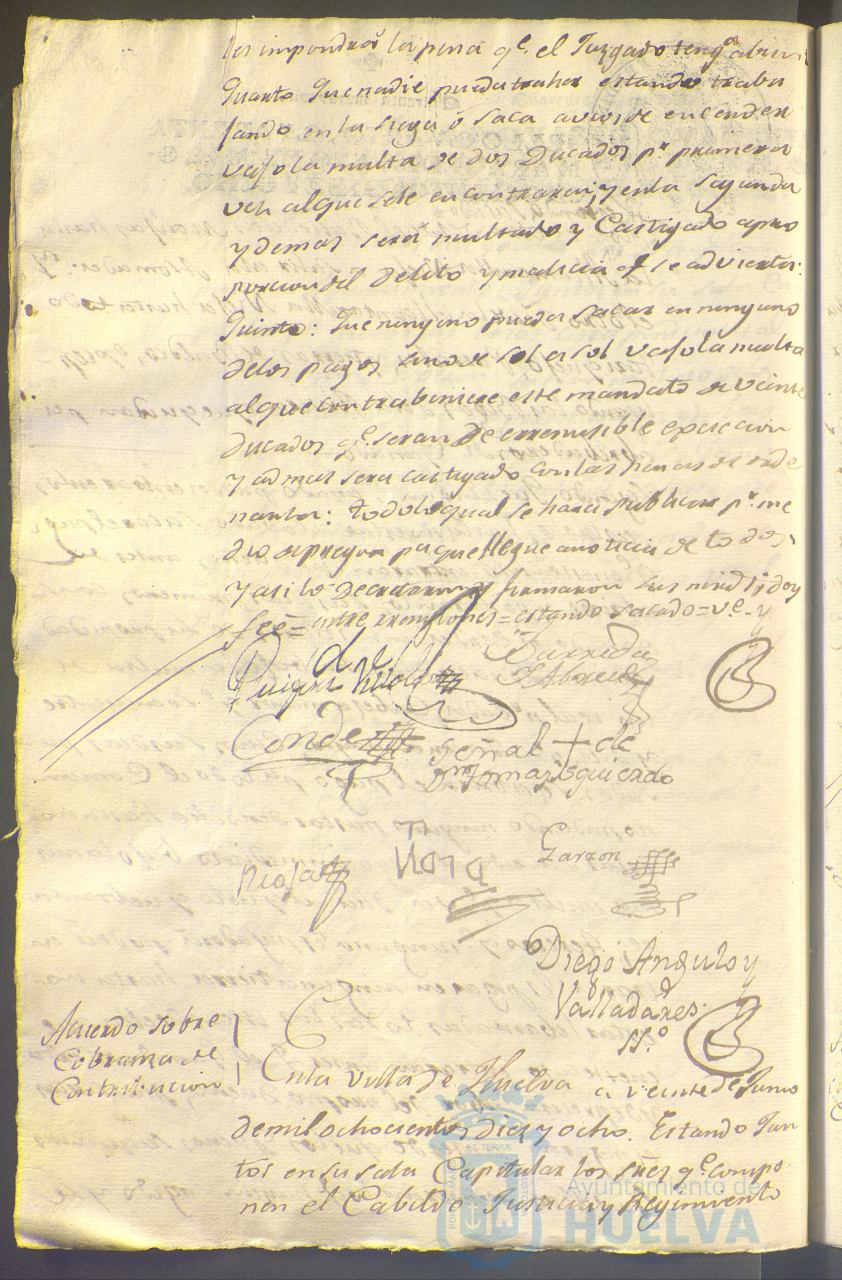 les impondrá la pena qe. el Juzgado tenga a bien
Quarto Que nadie pueda traher estando traba
jando en la siega ó saca avios de encender
vajo la multa de dos Ducados pr. primera
vez al que se le encontraren, y en la segunda
y demas será multado y Castigado apro
porcion del delito y malicia qe. se advierta:
Quinto: Que ninguno pueda sacar en ninguno
de los pagos sino de sol a sol vajo la multa
al que contrabiniere este mandato de veinte
Ducados qe. seran de irremisible execucion
y ademas sera castigado con las penas de orde
nanza: todo lo qual se hara publicar pr. me
dio de pregon pa que llegue a noticia de todos
y asi lo Decretaron y firmaron sus mrds doy
feé= entre renglones=estando sacado=ve.-y
Barreda
Conde
señal + de
Dn Tomas Izquierdo
Garzon
Diego Angulo y
Valladares.
SSº.
Acuerdo sobre
Cobranza de
Contribucion
En la villa de Huelva a veinte de Junio
de mil ochocientos diez y ocho. Estando Jun
tos en su sala Capitular los sres qe. compo
nen el Cabildo Justicia y Regimiento
Ayuntamiento de
HUELVA